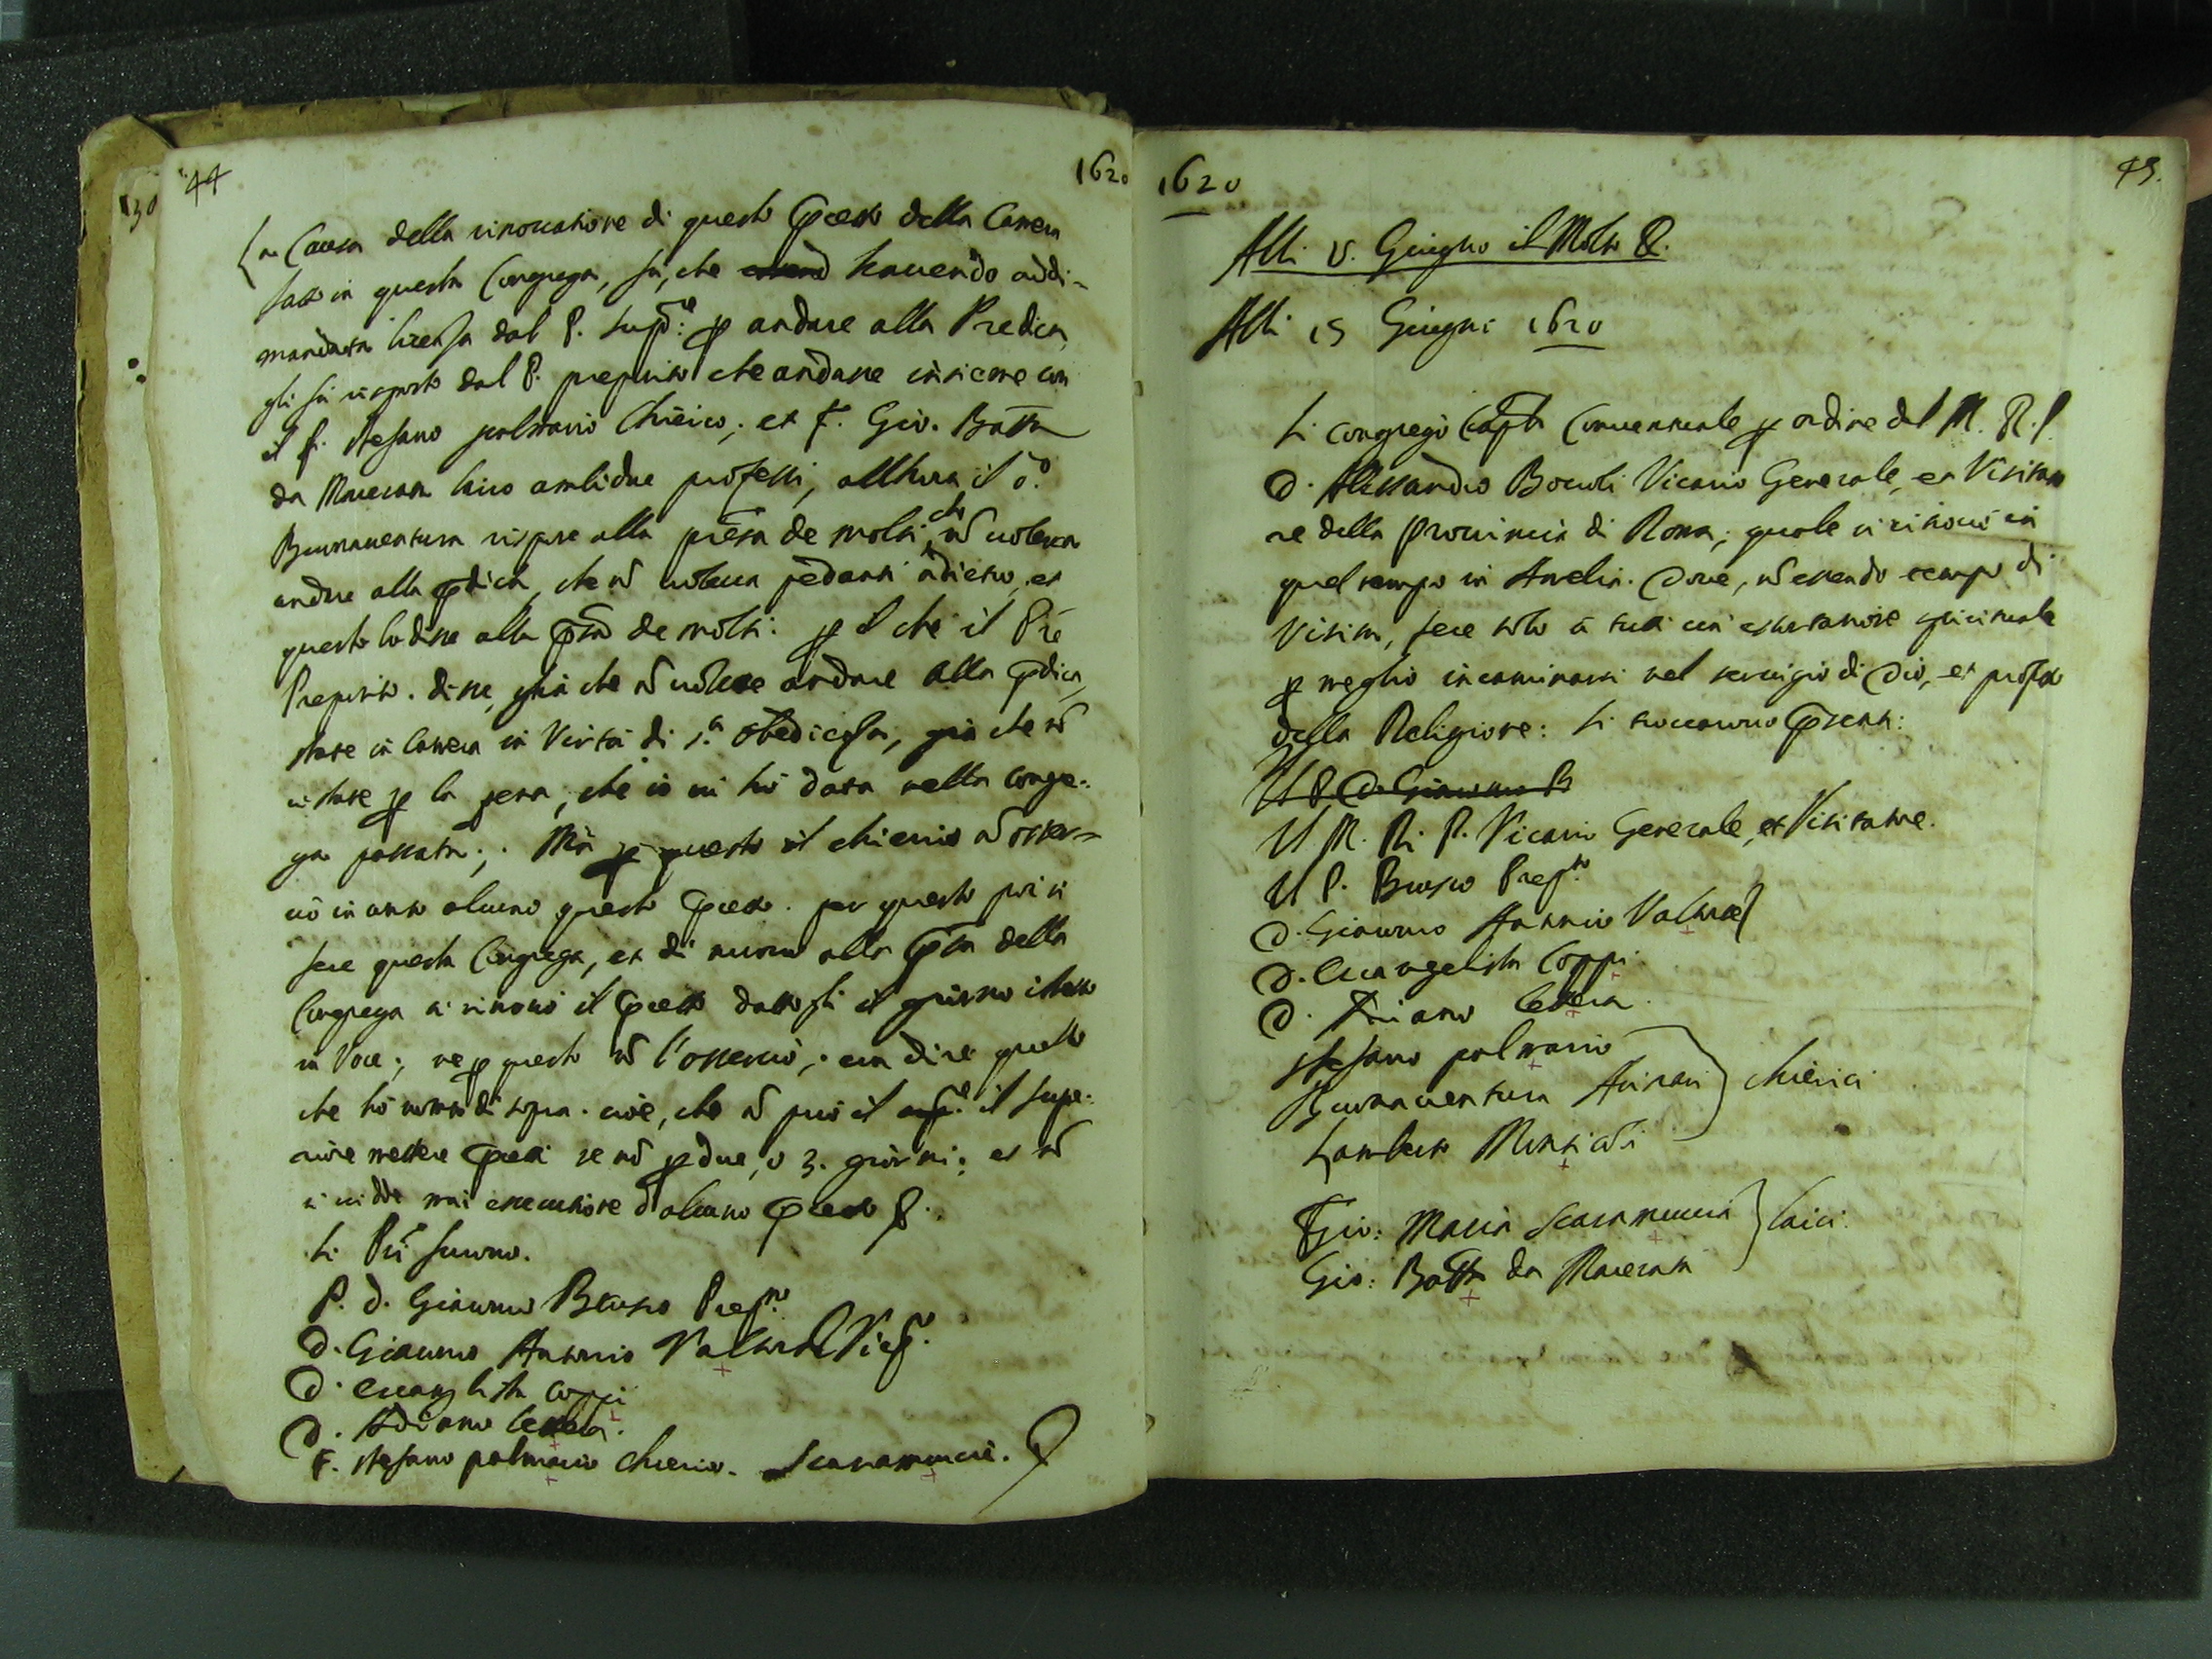 44
1620
La Causa della rinovatione di questo precetto della Camera
fatto in questa Congrega, fu, che havendo addi-
mandata licenza dal P. sup.re p andare alla Predica,
gli fu risposto dal P. preposito che andasse insieme con
il f. stefano palmario Chierico, et f. Gio. Batta
da Macerata laico ambidue professi, allhora il
Buonaventura rispose alla presa de molti che nō voleva
andare alla pdica, che nō voleva pedanti adietro, et
questo lo disse alla psa de molti: p il che il Prē
Preposito. disse, già che nō volete andare alla pdica,
state in camera in Virtù di s.a obedienza, già che nō
ci state p la pena, che io vi hò data nella congre-
ga passata; Mà p questo il chierico nō osser-
vò in conto alcuno questo pcetto. per questo poi si
fece questa Congrega, et di nuovo alla psa della
Congrega si rinovò il pcetto dattogli il giorno istesso
in Voce; ne p questo nō l'osservò; con dire quello
che hò notato di sopra. cioè, che nō può il il supe-
riore mettere pcetti se nō p due, o 3. giorni; et nō
si vidde mai essecutione d'alcuno pcetto
Li Pri furono.
P. D. Giacomo Brusco Prep.to
D. Giacomo Antonio Vice
D. Evangelista Coppi
D. Adriano
F. stefano palmario chierico. Scaramucia.
1620
45.
Alli v. Giugno il Molto R.
Alli 15 Giugni 1620
Si congregò Caplo Conventuale p ordine del M. R. P.
D. Alessandro Boccoli Vicario Generale, et Visitato
re della provincia di Roma; quale si ritrovò in
quel tempo in Amelia. Dove, nō essendo tempo di
Visita, fece solo à tutti un' essortatione spirituale
p meglio incaminarsi nel servigio di Dio, et profitto
della Religione: si trovarono psenti:
Il P. D. Giacomo B
Il M. R. P. Vicario Generale, et Visitatore.
Il P. Brusco Prep.to
D. Giacomo Antonio
D. Evangelista Coppi
D. Adriano
stefano palmario
Buonaventura chierici
Lamberto
Gio: Maria Scaramuccia laici.
Gio: Batta da Macerata